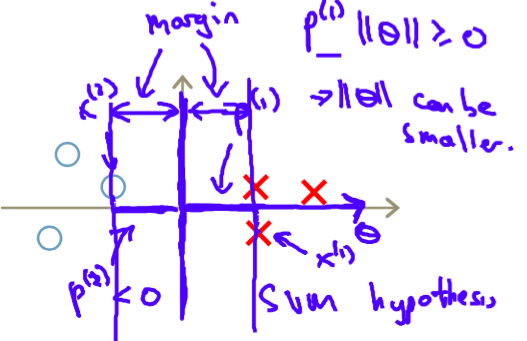 margin
p^(1) ||θ|| ≥ 0
x^(2)
p^(1)
→ ||θ|| can be
smaller.
θ
x^(1)
p^(2) < 0
SVM hypothesis